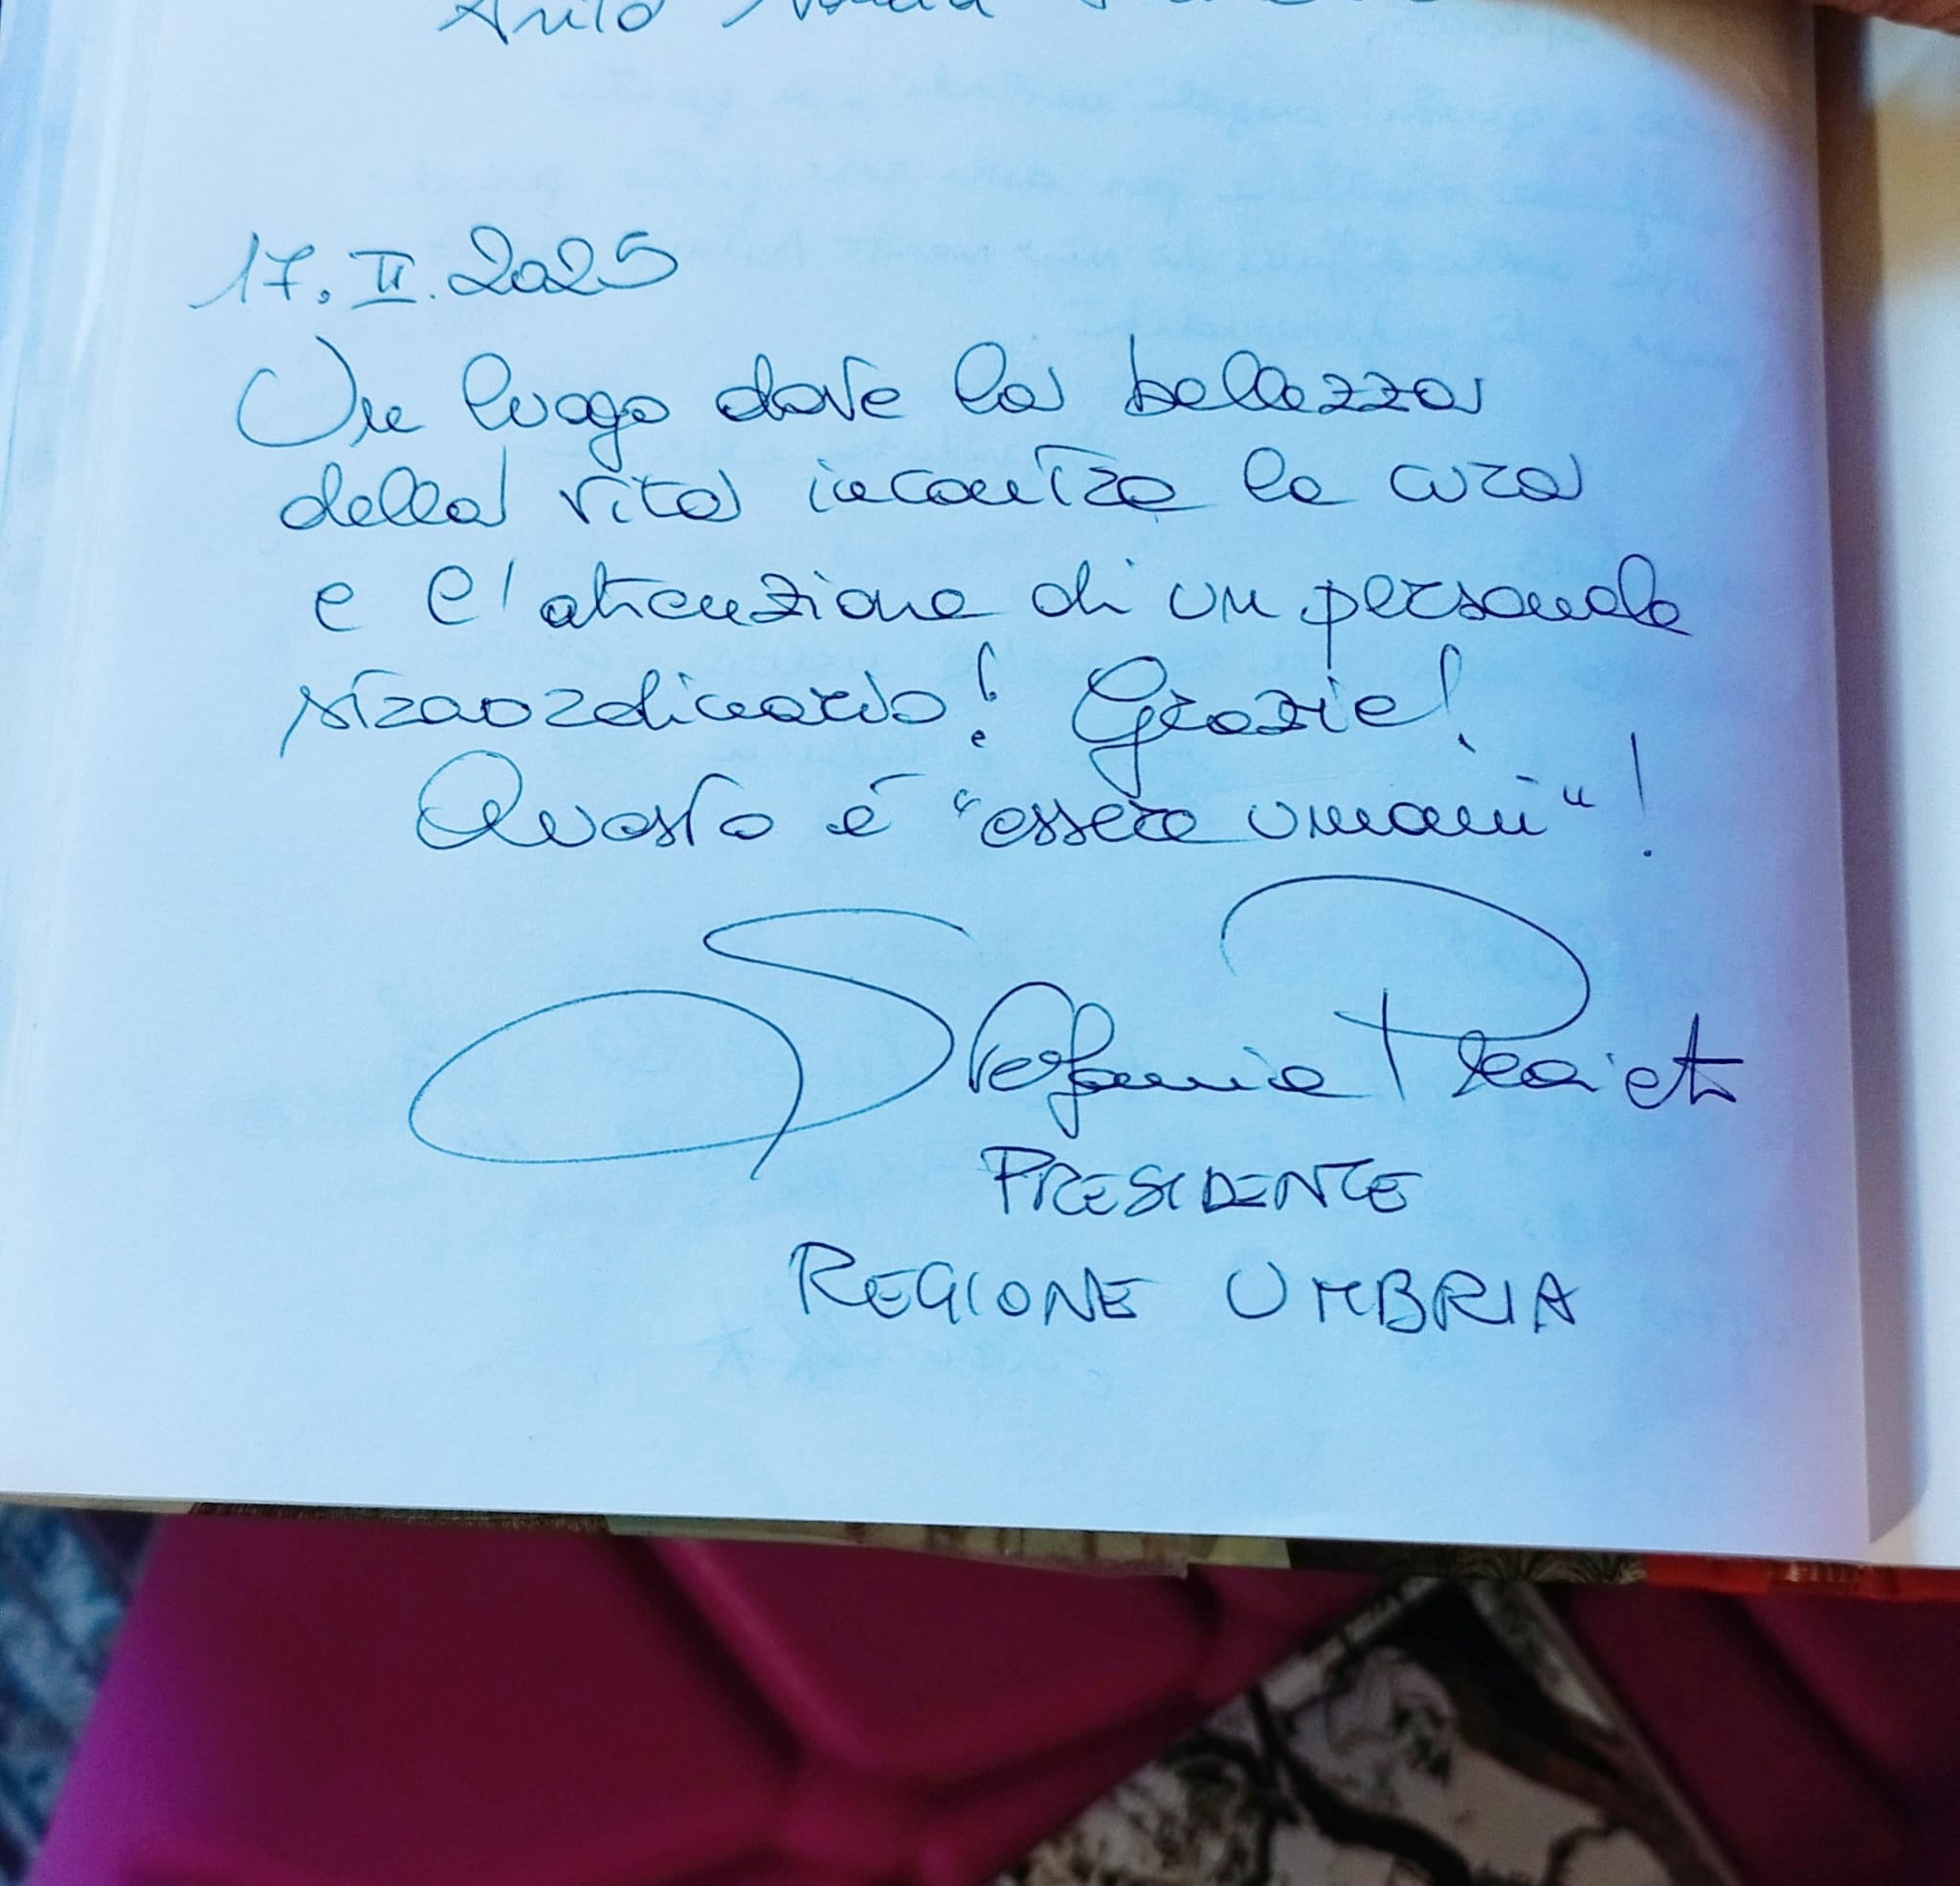 17. II. 2025
Un luogo dove la bellezza
della vita incontra la cura
e l'attenzione di un personale
straordinario! Grazie!
Questo è "essere umani"!
Stefania Proietti
PRESIDENTE
REGIONE UMBRIA